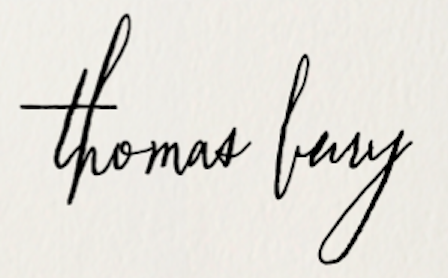 thomas berry